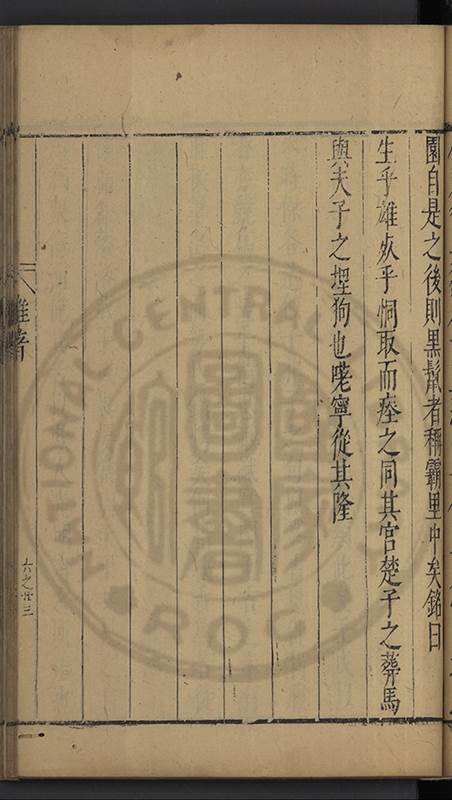 園自是之後則黑鬣者稱霸里中矣銘曰
生乎雄死乎恫取而瘞之同其宮楚子之葬馬
與夫子之埋狗也嗟寧從其隆
雜著
六之廿三
NATIONAL CENTRAL
ROC